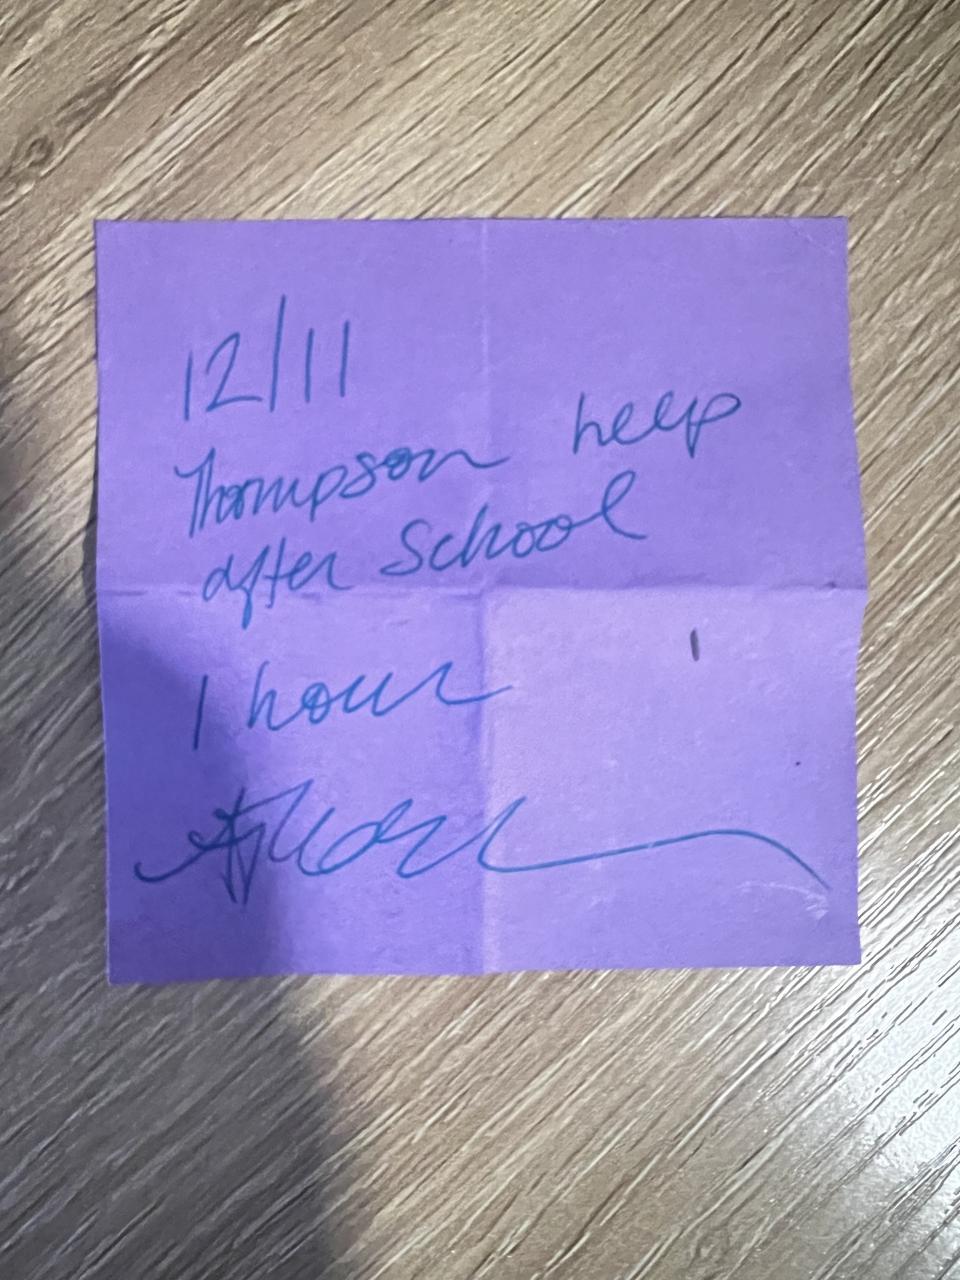 12/11
Thompson help
after School
1 hour